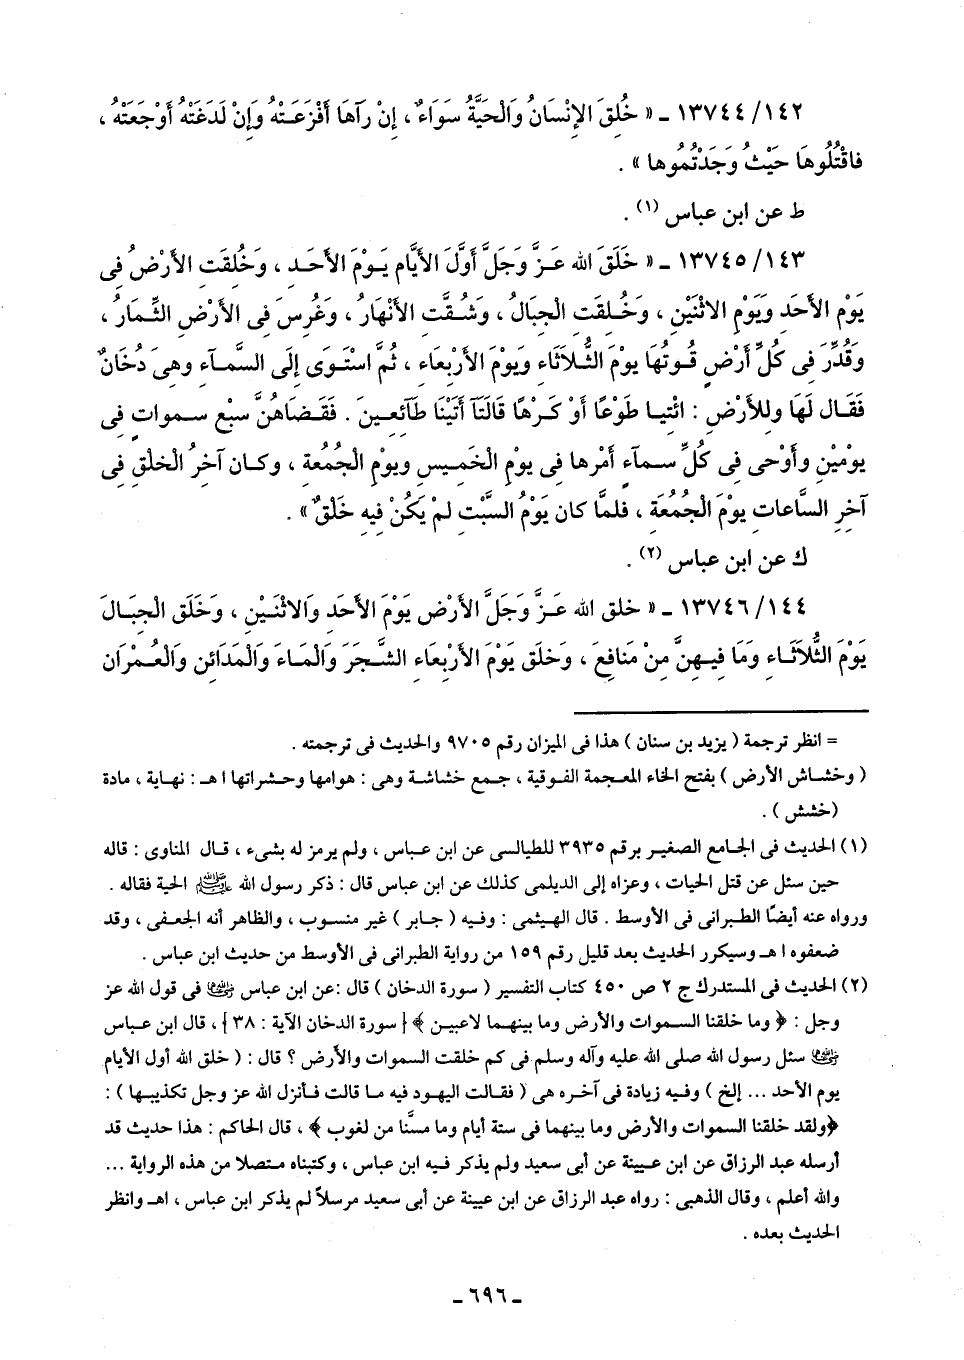 ١٤٢/ ١٣٧٤٤ ـ « خُلِقَ الإِنْسَانُ وَالْحَيَّةُ سَوَاءٌ ، إِنْ رَآهَا أَفْزَعَتْهُ وَإِنْ لَدَغَتْهُ أَوْجَعَتْهُ ،
فاقْتُلُوهَا حَيْثُ وَجَدْتُمُوها » .
ط عن ابن عباس (١) .
١٤٣/ ١٣٧٤٥ ـ « خَلَقَ الله عَزَّ وَجَلَّ أَوَّلَ الأَيَّامِ يَوْمَ الأَحَدِ ، وَخُلِقَتِ الأَرْضُ فِى
يَوْمِ الأَحَدِ وَيَوْمِ الاثْنَيْنِ ، وَخُلِقَتِ الْجِبَالُ ، وَشُقَّتِ الأَنْهَارُ ، وَغُرِسَ فِى الأَرْضِ الثِّمَارُ ،
وَقُدِّرَ فِى كُلِّ أَرْضٍ قُوتُهَا يَوْمَ الثُّلَاثَاءِ وَيَوْمَ الأَرْبِعَاءِ ، ثُمَّ اسْتَوَى إِلَى السَّمآءِ وهىَ دُخَانٌ
فَقَال لَهَا وللأَرْضِ : ائْتِيا طَوْعًا أَوْ كَرْهًا قَالَتَآ أَتَيْنَا طَآئِعِينَ . فَقَضَاهُنَّ سَبْعَ سمواتٍ فِى
يوْمْيْنِ وأَوْحى فِى كُلِّ سمآءٍ أَمْرها فِى يوْمِ الْخَمِيسِ ويوْمِ الْجُمُعةِ ، وكان آخِرُ الْخلْقِ فِى
آخِرِ السَّاعاتِ يوْمَ الْجُمُعَةِ ، فلمَّا كان يَوْمُ السَّبْتِ لمْ يَكُنْ فِيهِ خَلْقٌ » .
ك عن ابن عباس (٢) .
١٤٤/ ١٣٧٤٦ ـ « خلق الله عَزَّ وَجَلَّ الأَرْضَ يَوْمَ الأَحَدِ وَالاثْنَيْنِ ، وَخَلَقَ الْجِبَالَ
يَوْمَ الثُّلَاثَاءِ وَمَا فِيهِنَّ مِنْ مَنَافِعَ ، وَخَلَقَ يَوْمَ الأَرْبِعَاءِ الشَّجَرَ وَالْمَاءَ وَالْمَدَائِنَ وَالْعُمْرَانَ
= انظر ترجمة ( يزيد بن سنان ) هذا فى الميزان رقم ٩٧٠٥ والحديث فى ترجمته .
( وخشاش الأرض ) بفتح الخاء المعجمة الفوقية ، جمع خشاشة وهى : هوامها وحشراتها اهـ : نهاية ، مادة
(خشش ) .
(١) الحديث فى الجامع الصغير برقم ٣٩٣٥ للطيالسى عن ابن عباس ، ولم يرمز له بشىء ، قال المناوى : قاله
حين سئل عن قتل الحيات ، وعزاه إلى الديلمى كذلك عن ابن عباس قال : ذكر رسول الله ﷺ الحية فقاله .
ورواه عنه أيضًا الطبرانى فى الأوسط . قال الهيثمى : وفيه ( جابر ) غير منسوب ، والظاهر أنه الجعفى ، وقد
ضعفوه اهـ وسيكرر الحديث بعد قليل رقم ١٥٩ من رواية الطبرانى فى الأوسط من حديث ابن عباس .
(٢) الحديث فى المستدرك ج ٢ ص ٤٥٠ كتاب التفسير ( سورة الدخان ) قال :عن ابن عباس رضي الله عنه فى قول الله عز
وجل : ﴿ وما خلقنا السموات والأرض وما بينهما لاعبين ﴾ [ سورة الدخان الآية : ٣٨ ] ، قال ابن عباس
رضي الله عنه سئل رسول الله صلى الله عليه وآله وسلم فى كم خلقت السموات والأرض ؟ قال : ( خلق الله أول الأيام
يوم الأحد ... إلخ ) وفيه زيادة فى آخره هى ( فقالت اليهود فيه ما قالت فأنزل الله عز وجل تكذيبها ) :
﴿ولقد خلقنا السموات والأرض وما بينهما فى ستة أيام وما مسَّنا من لغوب ﴾ ، قال الحاكم : هذا حديث قد
أرسله عبد الرزاق عن ابن عيينة عن أبى سعيد ولم يذكر فيه ابن عباس ، وكتبناه متصلا من هذه الرواية ...
والله أعلم ، وقال الذهبى : رواه عبد الرزاق عن ابن عيينة عن أبى سعيد مرسلاً لم يذكر ابن عباس ، اهـ وانظر
الحديث بعده .
ـ ٦٩٦ ـ